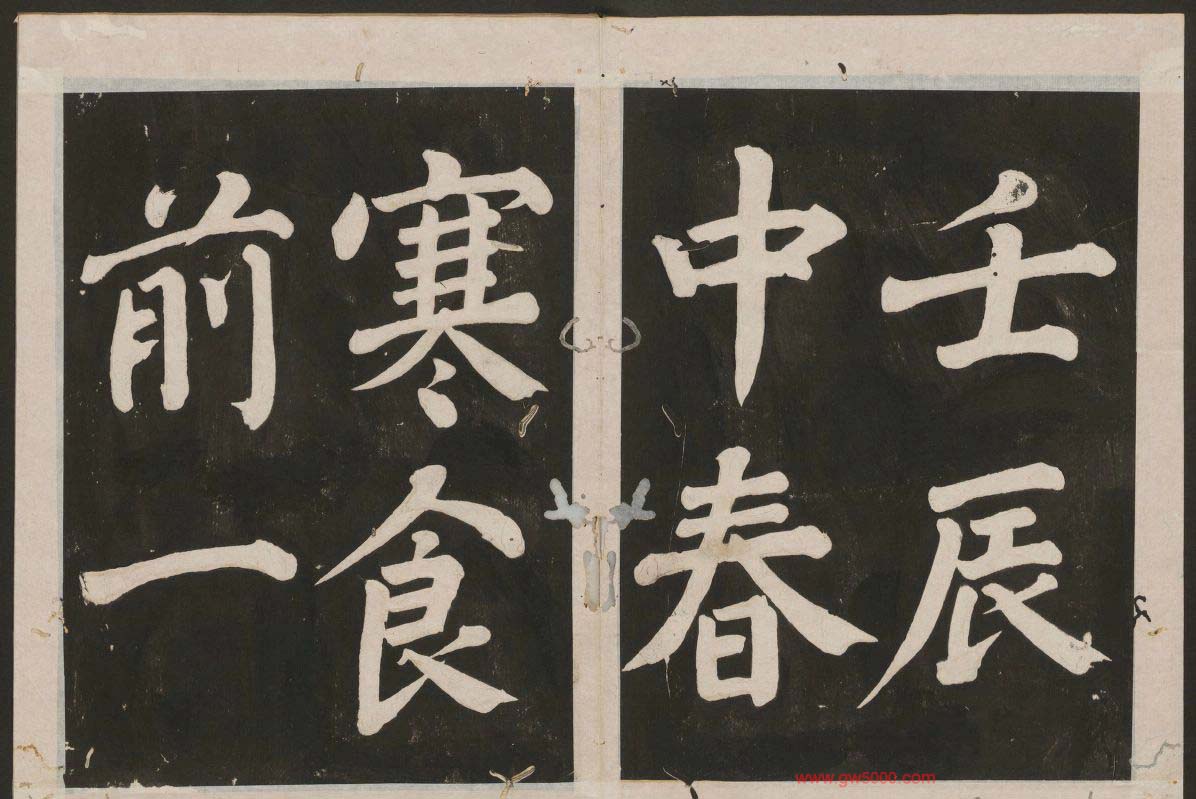 壬辰
中春
寒食
前一
www.gw5000.com